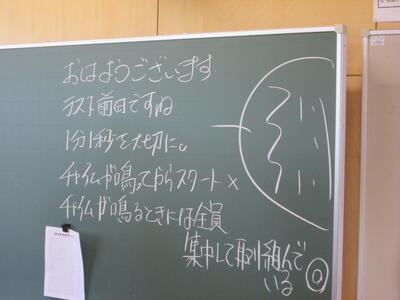 おはようございます
テスト前日ですね
1分1秒を大切に。
チャイムが鳴ってからスタート×
チャイムが鳴るときには全員
集中して取り組んで
いる◎